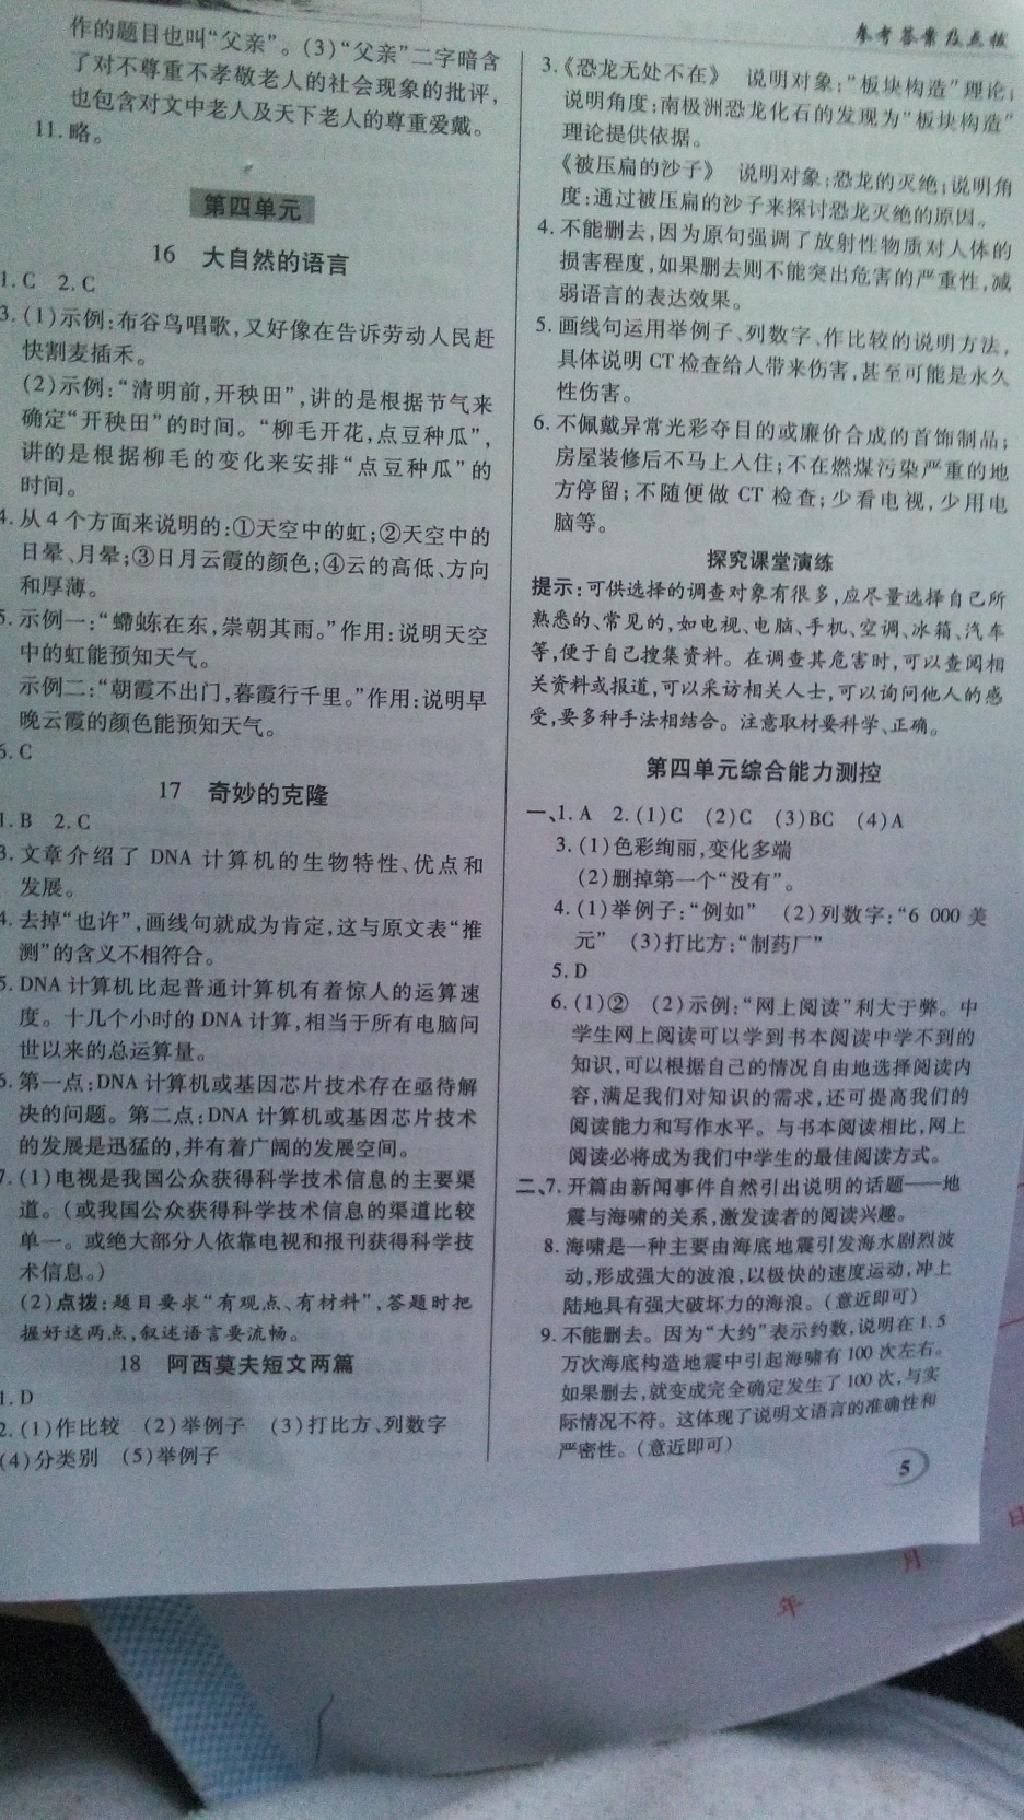 参考答案及点拨
作的题目也叫“父亲”。(3)“父亲”二字暗含
了对不尊重不孝敬老人的社会现象的批评,
也包含对文中老人及天下老人的尊重爱戴。
11. 略。
第四单元
16 大自然的语言
1. C 2. C
3. (1)示例:布谷鸟唱歌,又好像在告诉劳动人民赶
快割麦插禾。
(2)示例:“清明前,开秧田”,讲的是根据节气来
确定“开秧田”的时间。“柳毛开花,点豆种瓜”,
讲的是根据柳毛的变化来安排“点豆种瓜”的
时间。
4. 从4个方面来说明的:①天空中的虹;②天空中的
日晕、月晕;③日月云霞的颜色;④云的高低、方向
和厚薄。
5. 示例一:“蟛蝀在东,崇朝其雨。”作用:说明天空
中的虹能预知天气。
示例二:“朝霞不出门,暮霞行千里。”作用:说明早
晚云霞的颜色能预知天气。
6. C
17 奇妙的克隆
1. B 2. C
3. 文章介绍了 DNA 计算机的生物特性、优点和
发展。
4. 去掉“也许”,画线句就成为肯定,这与原文表“推
测”的含义不相符合。
5. DNA 计算机比起普通计算机有着惊人的运算速
度。十几个小时的 DNA 计算,相当于所有电脑问
世以来的总运算量。
6. 第一点:DNA 计算机或基因芯片技术存在亟待解
决的问题。第二点:DNA 计算机或基因芯片技术
的发展是迅猛的,并有着广阔的发展空间。
7. (1)电视是我国公众获得科学技术信息的主要渠
道。(或我国公众获得科学技术信息的渠道比较
单一。或绝大部分人依靠电视和报刊获得科学技
术信息。)
(2)点拨:题目要求“有观点、有材料”,答题时把
握好这两点,叙述语言要流畅。
18 阿西莫夫短文两篇
1. D
2. (1)作比较 (2)举例子 (3)打比方、列数字
(4)分类别 (5)举例子
3. 《恐龙无处不在》 说明对象:“板块构造”理论;
说明角度:南极洲恐龙化石的发现为“板块构造”
理论提供依据。
《被压扁的沙子》 说明对象:恐龙的灭绝;说明角
度:通过被压扁的沙子来探讨恐龙灭绝的原因。
4. 不能删去,因为原句强调了放射性物质对人体的
损害程度,如果删去则不能突出危害的严重性,减
弱语言的表达效果。
5. 画线句运用举例子、列数字、作比较的说明方法,
具体说明 CT 检查给人带来伤害,甚至可能是永久
性伤害。
6. 不佩戴异常光彩夺目的或廉价合成的首饰制品;
房屋装修后不马上入住;不在燃煤污染严重的地
方停留;不随便做 CT 检查;少看电视,少用电
脑等。
探究课堂演练
提示:可供选择的调查对象有很多,应尽量选择自己所
熟悉的、常见的,如电视、电脑、手机、空调、冰箱、汽车
等,便于自己搜集资料。在调查其危害时,可以查阅相
关资料或报道,可以采访相关人士,可以询问他人的感
受,要多种手法相结合。注意取材要科学、正确。
第四单元综合能力测控
一、1. A 2. (1)C (2)C (3)BC (4)A
3. (1)色彩绚丽,变化多端
(2)删掉第一个“没有”。
4. (1)举例子:“例如” (2)列数字:“6 000 美
元” (3)打比方:“制药厂”
5. D
6. (1)② (2)示例:“网上阅读”利大于弊。中
学生网上阅读可以学到书本阅读中学不到的
知识,可以根据自己的情况自由地选择阅读内
容,满足我们对知识的需求,还可提高我们的
阅读能力和写作水平。与书本阅读相比,网上
阅读必将成为我们中学生的最佳阅读方式。
二、7. 开篇由新闻事件自然引出说明的话题——地
震与海啸的关系,激发读者的阅读兴趣。
8. 海啸是一种主要由海底地震引发海水剧烈波
动,形成强大的波浪,以极快的速度运动,冲上
陆地具有强大破坏力的海浪。(意近即可)
9. 不能删去。因为“大约”表示约数,说明在 1. 5
万次海底构造地震中引起海啸有 100 次左右。
如果删去,就变成完全确定发生了 100 次,与实
际情况不符。这体现了说明文语言的准确性和
严密性。(意近即可)
5
年 月 日